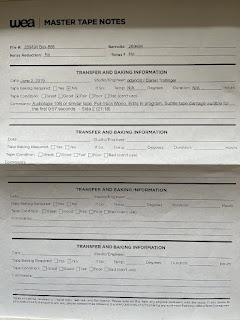 wea | MASTER TAPE NOTES
File #:
Barcode:
Noise Reduction: No
Tones? No
TRANSFER AND BAKING INFORMATION
Date: June 2, 2019 Studio/Engineer: Trollinger
Tape Baking Required: Yes No If So, Temp: N/A Degrees Duration: N/A Hours
Tape Condition: Great Good Fair Poor Bad (can't use)
Comments: Audiotape 106 or similar tape. Full-track Mono. Edits in program. Subtle tape damage audible for
the first 0:57 seconds. - Side 2 (21:18)
TRANSFER AND BAKING INFORMATION
Date: Studio/Engineer:
Tape Baking Required: Yes No If So, Temp: Degrees Duration: Hours
Tape Condition: Great Good Fair Poor Bad (can't use)
Comments:
TRANSFER AND BAKING INFORMATION
Date: Studio/Engineer:
Tape Baking Required: Yes No If So, Temp: Degrees Duration: Hours
Tape Condition: Great Good Fair Poor Bad (can't use)
Comments:
TRANSFER AND BAKING INFORMATION
Date: Studio/Engineer:
Tape Baking Required: Yes No If So, Temp: Degrees Duration: Hours
Tape Condition: Great Good Fair Poor Bad (can't use)
Comments: